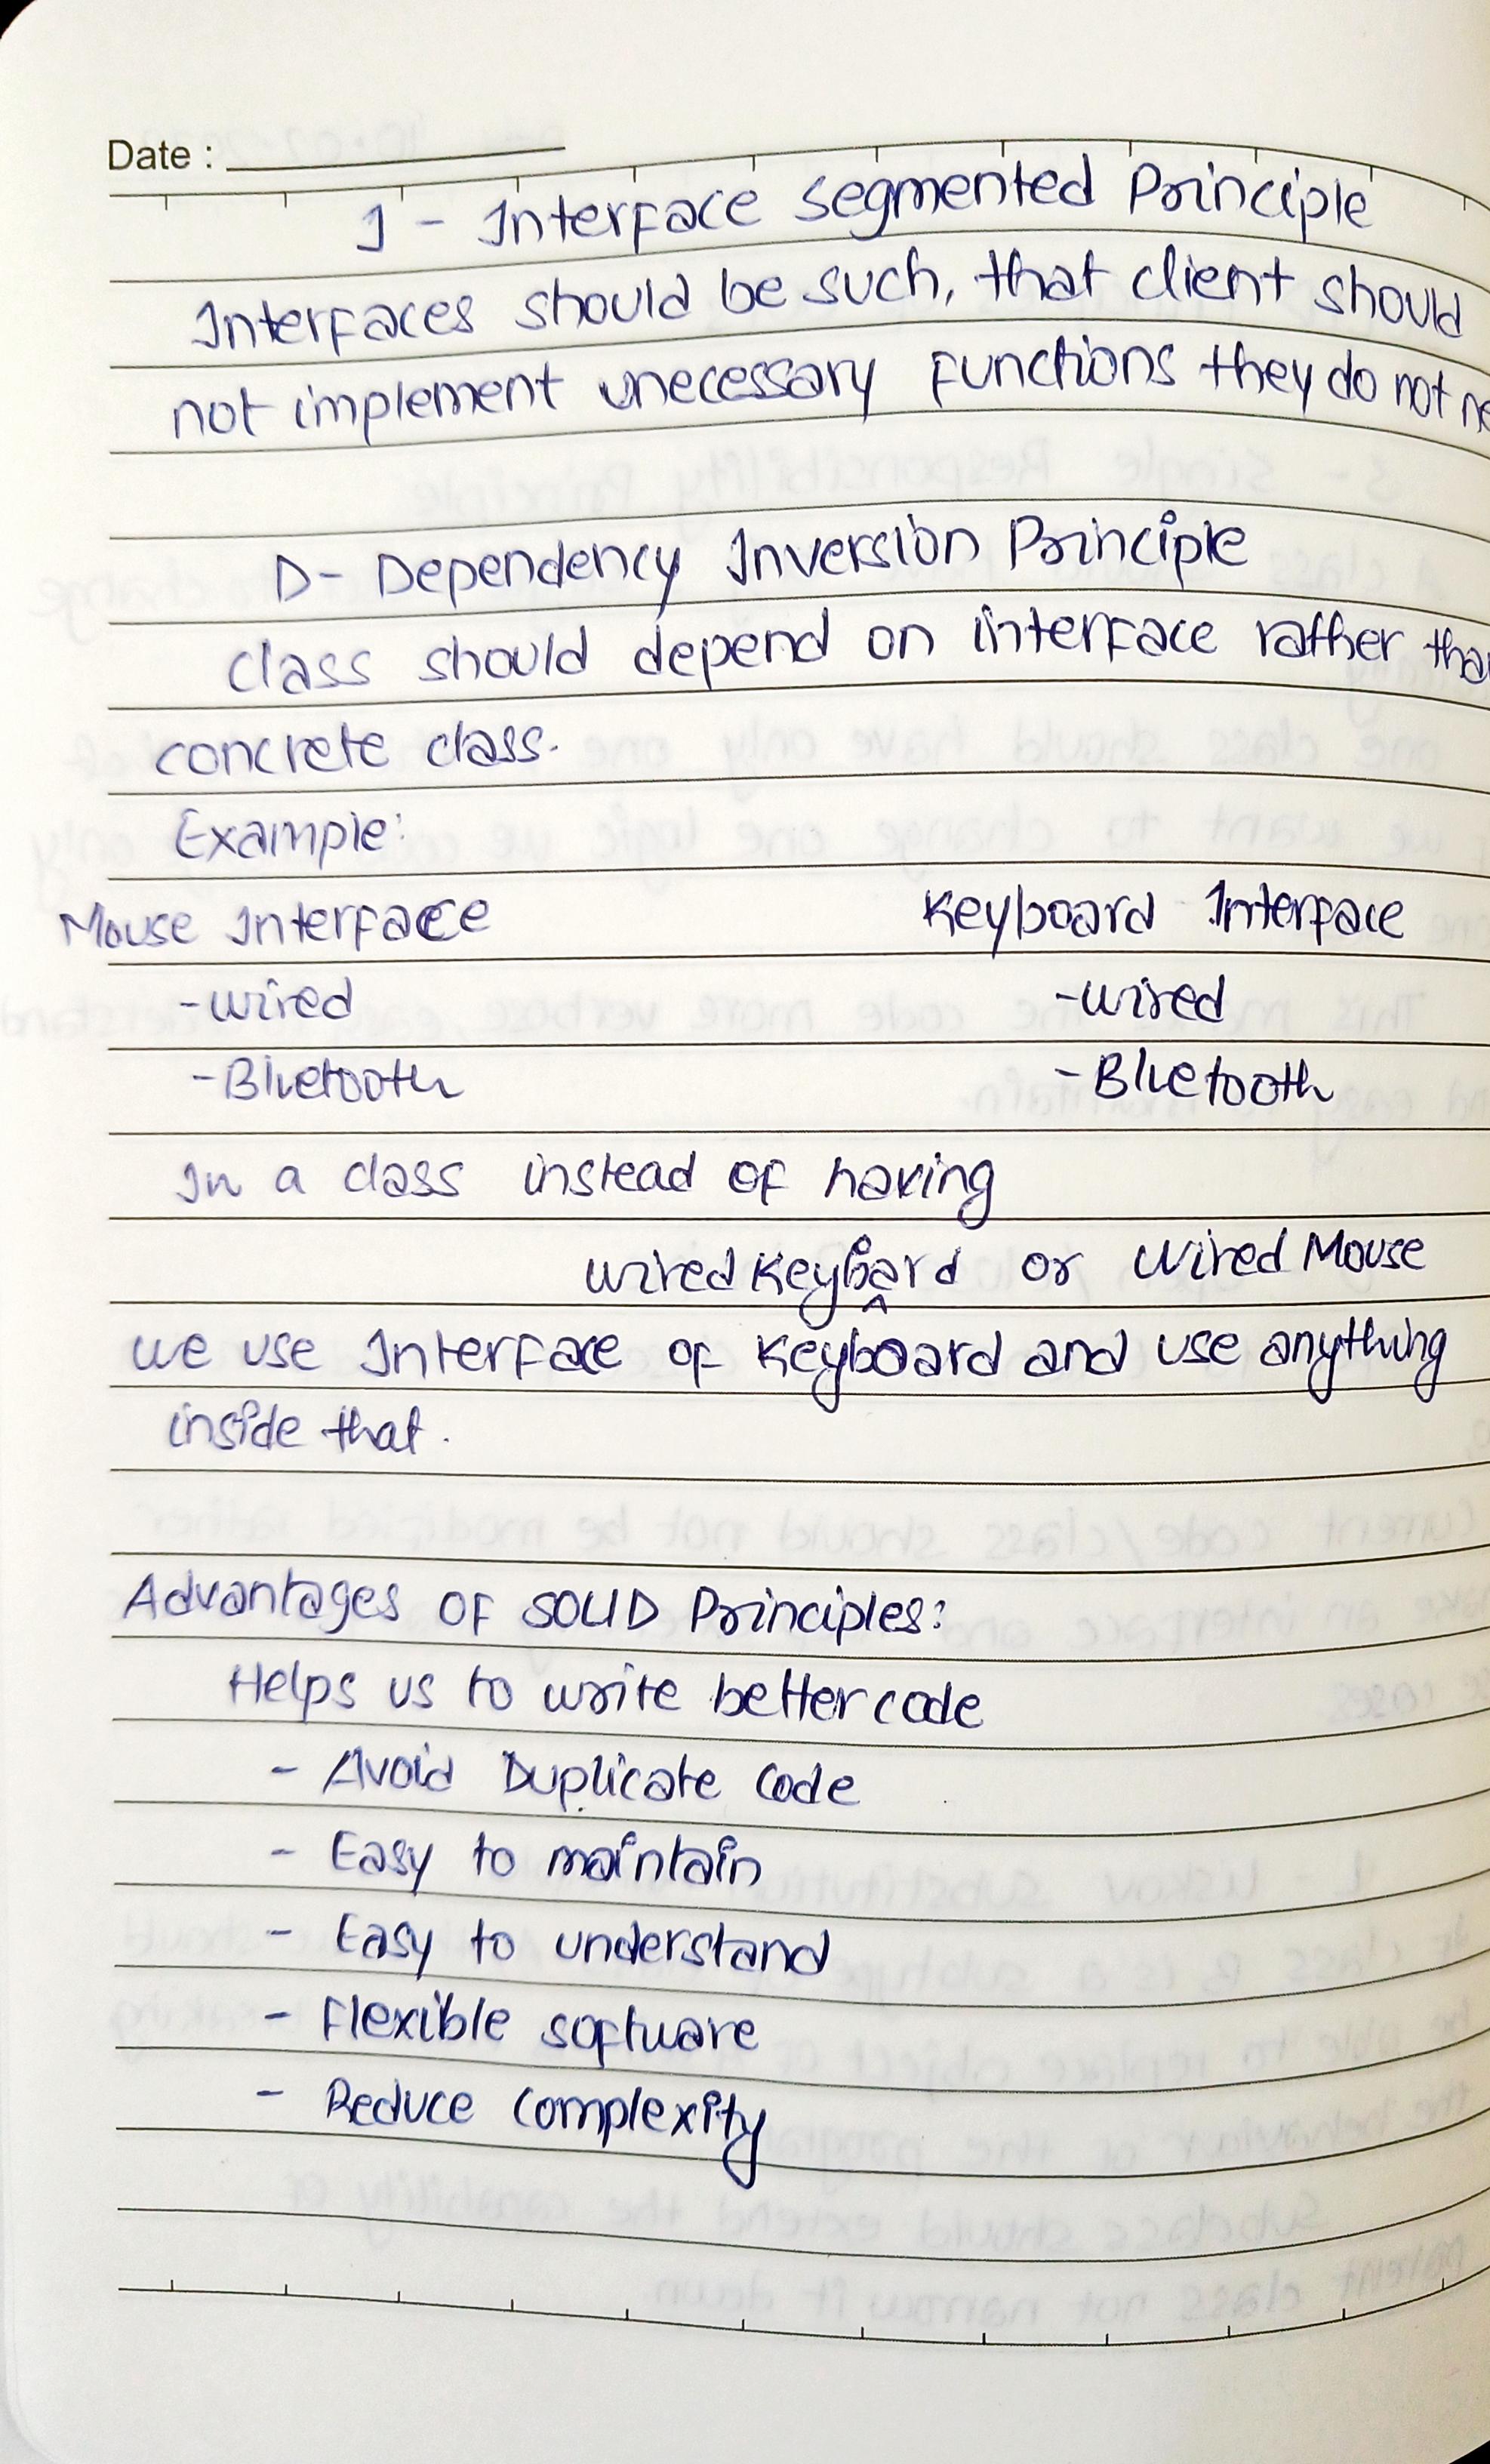 Date :
I - Interface Segmented Principle
Interfaces should be such, that client should
not implement unecessary functions they do not ne
D- Dependency Inversion Principle
class should depend on interface rather than
concrete class.
Example:
Mouse Interface Keyboard Interface
-wired -wired
-Bluetooth -Bluetooth
In a class instead of having
wired Keyboard or Wired Mouse
we use Interface of Keyboard and use anything
inside that.
Advantages OF SOLID Principles:
Helps us to write better code
- Avoid Duplicate Code
- Easy to maintain
- Easy to understand
- Flexible software
- Reduce Complexity